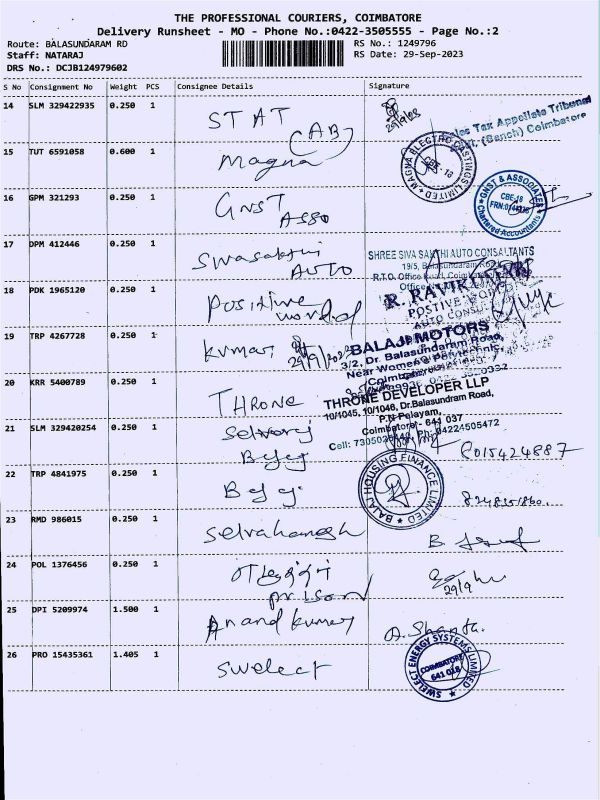 THE PROFESSIONAL COURIERS, COIMBATORE
Delivery Runsheet - MO - Phone No.:0422-3505555 - Page No.:2
Route: BALASUNDARAM RD
RS No.: 1249796
Staff: NATARAJ
RS Date: 29-Sep-2023
DRS No.: DCJB124979602
S No Consignment No Weight PCS Consignee Details Signature
14 SLM 329422935 0.250 1 STAT
(AB)
29/9/23
Sales Tax Appellate Tribunal
(Bench) Coimbatore
15 TUT 6591058 0.600 1 Magna
MAGNA ELECTRO CASTINGS LIMITED
CBE - 18
16 GPM 321293 0.250 1 GNST
ASSO
GNST & ASSOCIATES
CBE-18
Chartered Accountants
17 DPM 412446 0.250 1 Swasakthi
AUTO
SHREE SIVA SAKTHI AUTO CONSULTANTS
19/5, Balasundaram Road,
R.T.O. Office Road, Coimbatore
18 PDK 1965120 0.250 1 Positive
world
R. RAVIKUMAR
POSTIVE WORLD
AUTO CONSULT
19 TRP 4267728 0.250 1 Kumar
BALAJI MOTORS
3/2, Dr. Balasundaram Road,
Near Women's Polytechnic,
Coimbatore
20 KRR 5400789 0.250 1 THRONE
THRONE DEVELOPER LLP
10/1045, 10/1046, Dr.Balasundram Road,
P.N Palayam,
Coimbatore - 641 037
Ph: 04224505472
21 SLM 329420254 0.250 1 Selvaraj
Bajaj
8015424887
22 TRP 4841975 0.250 1 Bajaj
BAJAJ HOUSING FINANCE LIMITED
23 RMD 986015 0.250 1
24 POL 1376456 0.250 1
prison
25 DPI 5209974 1.500 1 Anand kumar
A. Shanta.
26 PRO 15435361 1.405 1 Swelect
SWELECT ENERGY SYSTEMS LIMITED
COIMBATORE
641 018